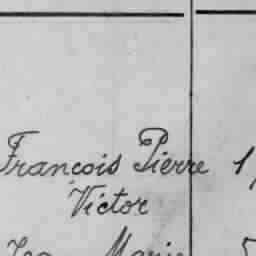 François Pierre 1
Victor
Marie